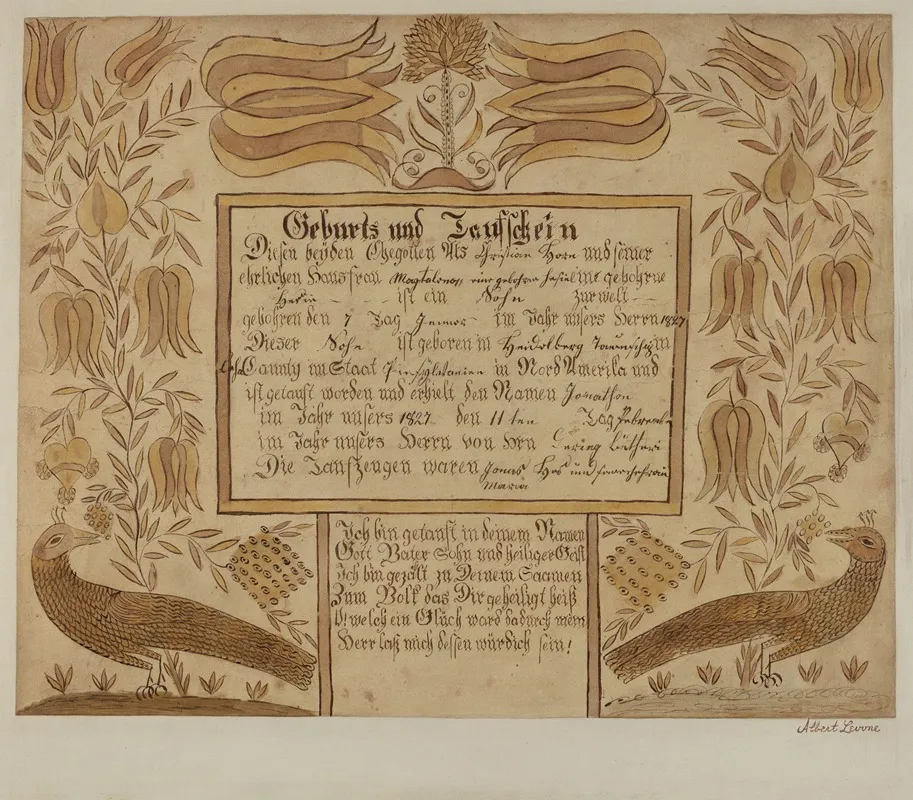 Geburts und Taufschein
Diesen beyden Ehegatten Als Christian Horn und seiner
ehrlichen Hausfrau Magtalena eine gebohrne
ist ein Sohn zur welt
gebohren den 7 Tag Jenner im Jahr unsers Herrn 1827
Dieser Sohn ist geboren in Heidelberg Taunschip in
Caunty im Staat in Nord Amerika und
ist getauft worden und erhielt den Namen Jonathon
im Jahr unsers 1827 den 11 ten Tag
im Jahr unsers Herrn von Hrn
Die Taufzeugen waren Jonas Hes und
Maria
Ich bin getauft in deinem Namen
Gott Vater Sohn und heiliger Geist
Ich bin gezält zu Deinem Saamen
Zum Volk das Dir geheiligt heiß
O! welch ein Glück ward dadurch mein
Herr laß mich dessen würdich sein!
Albert Levone